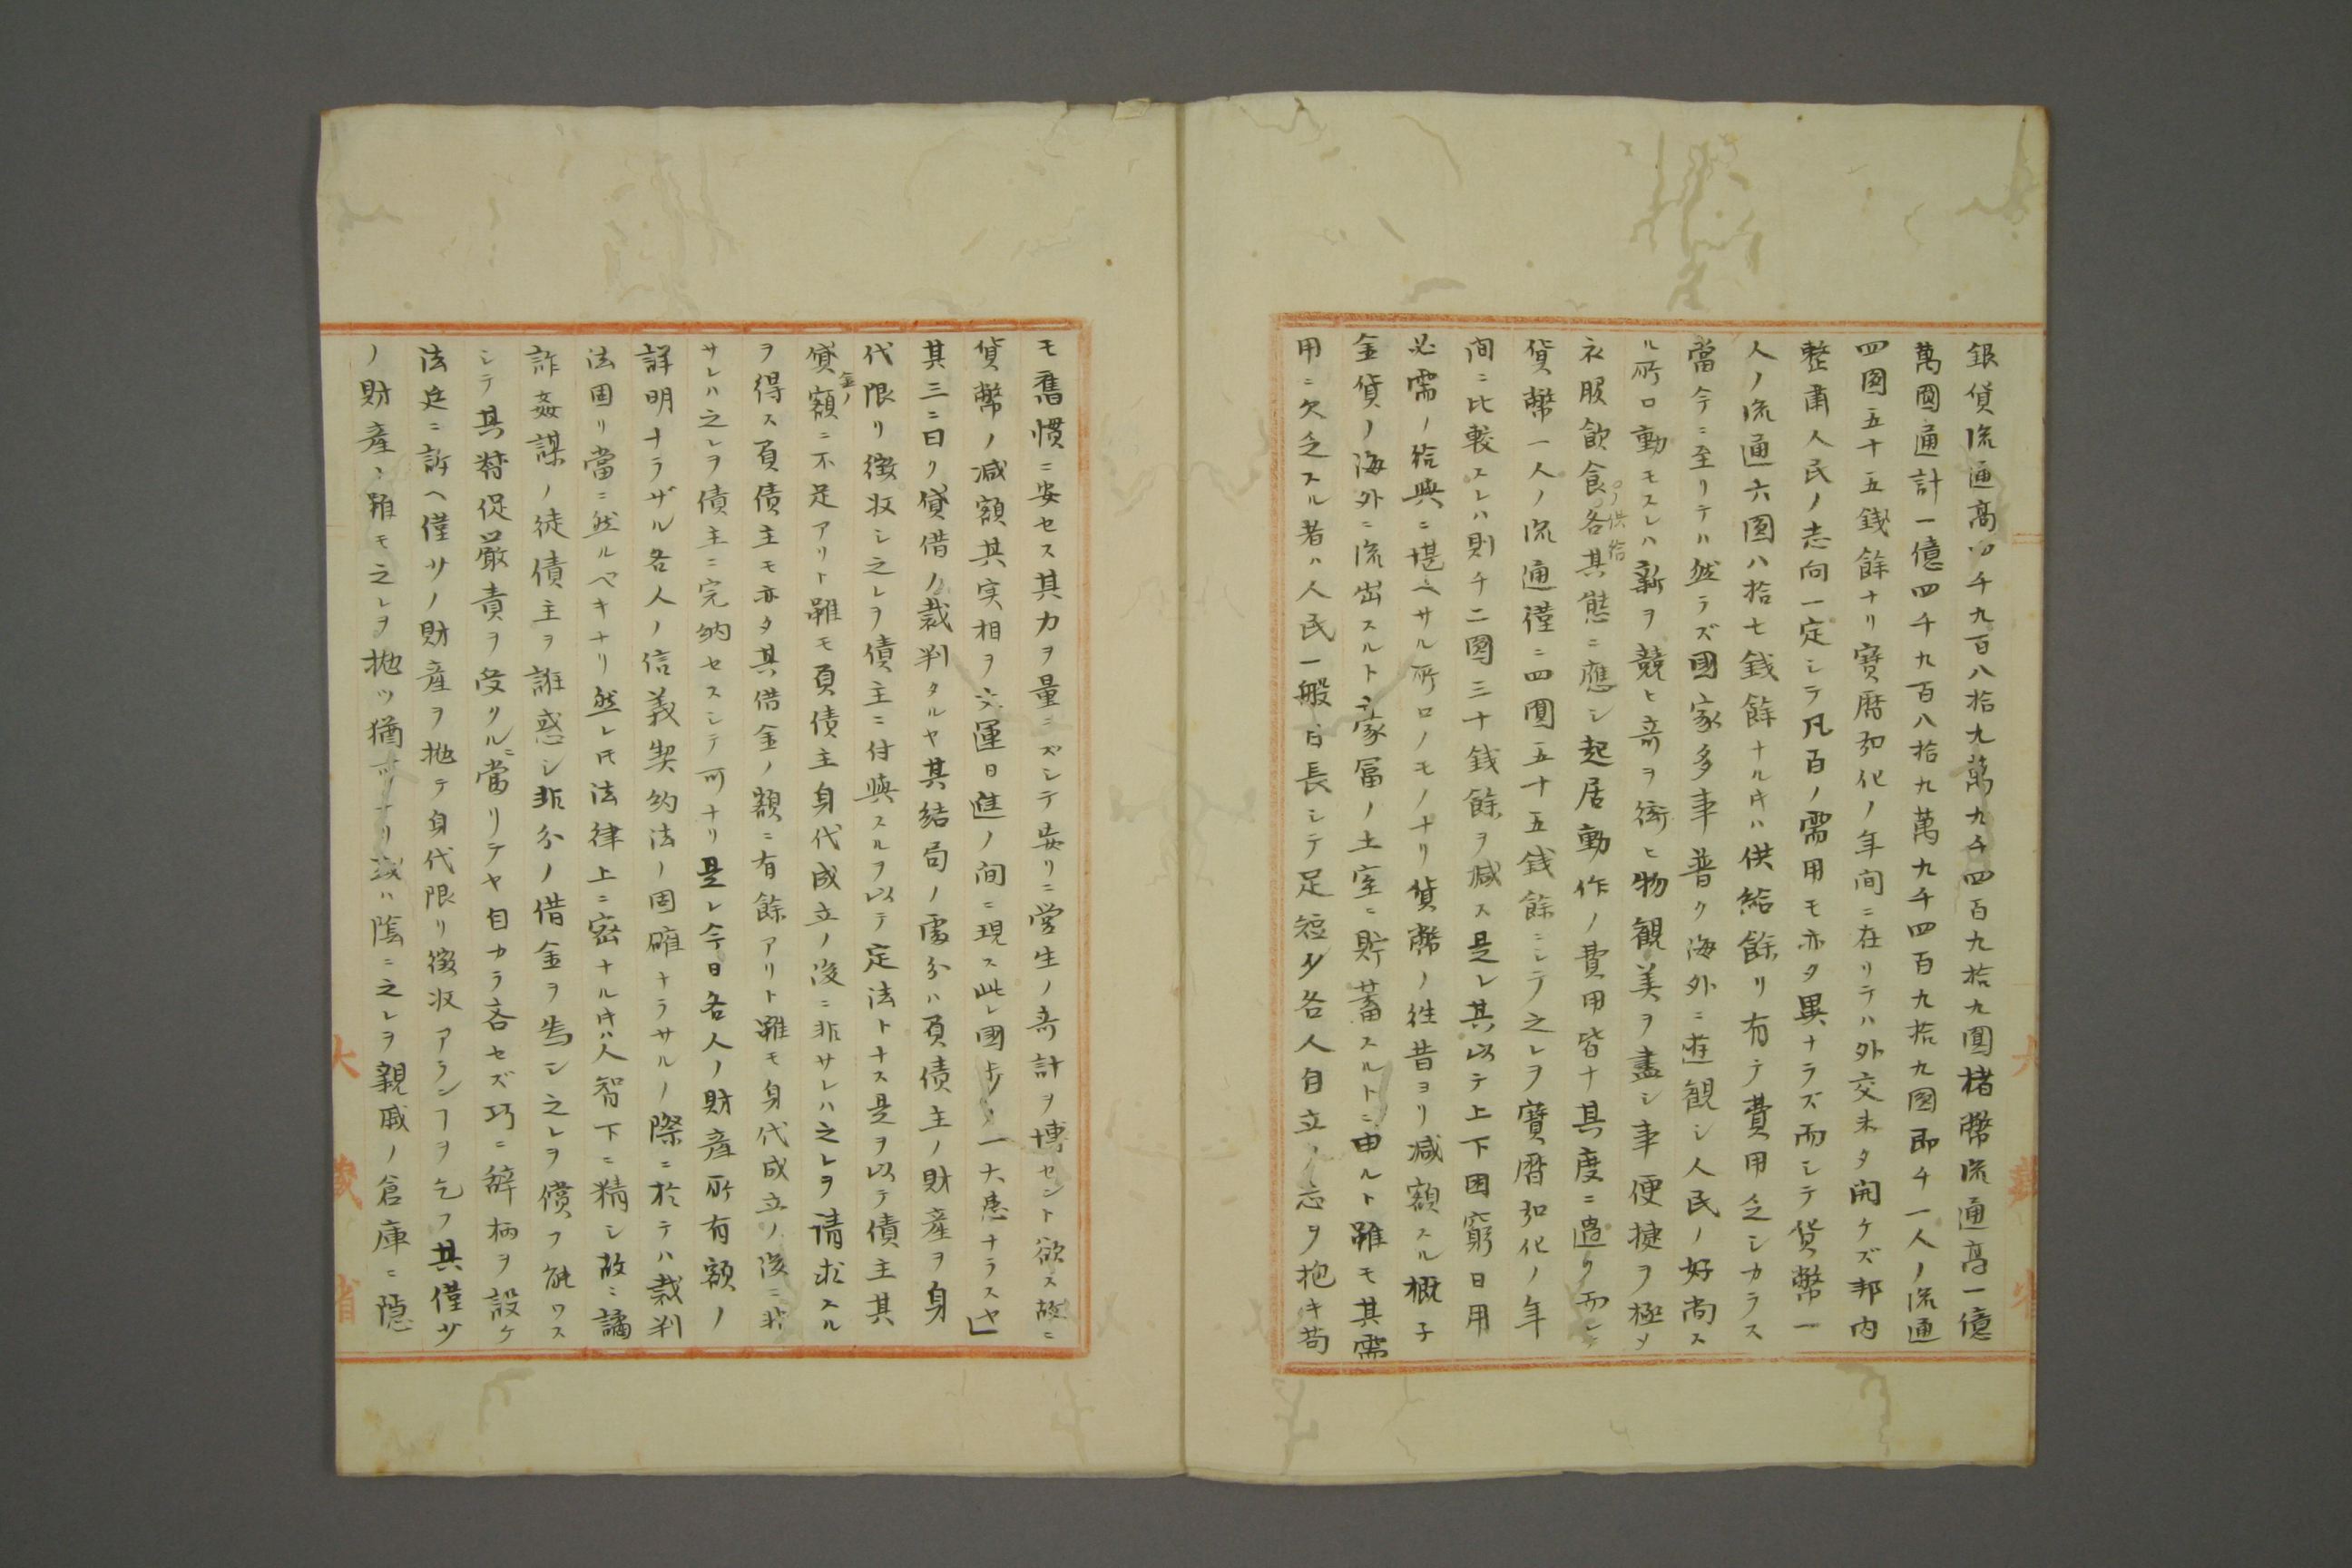 銀貨流通高四千九百八拾九萬九千四百九拾九圓楮幣流通高一億
萬圓通計一億四千九百八拾九萬九千四百九拾九圓即チ一人ノ流通
四圓五十五錢餘ナリ寶暦弘化ノ年间ニ在リテハ外交未タ開ケズ邦内
整肅人民ノ志向一定シテ凡百ノ需用モ亦タ異ナラズ而シテ貨幣一
人ノ流通六圓八拾七錢餘ナル片ハ供給餘リ有テ費用乏シカラス
當今ニ至リテハ然ラズ國家多事普ク海外ニ遊観シ人民ノ好尚ス
ル所ロ動モスレハ新ヲ競ヒ奇ヲ衒ヒ物観美ヲ盡シ事便捷ヲ極メ
衣服飲食ノ供給各其態ニ應シ起居動作ノ費用皆ナ其度ニ過ク而シテ
貨幣一人ノ流通僅ニ四圓五十五錢餘ニシテ之レヲ寶暦弘化ノ年
间ニ比較スレハ則チ二圓三十錢餘ヲ減ス是レ其以テ上下困窮日用
必需ノ給與ニ堪ヘサル所ロノモノナリ貨幣ノ往昔ヨリ減額スル概子
金貨ノ海外ニ流出スルト家冨ノ土室ニ貯蓄スルトニ由ルト雖モ其需
用ニ欠乏スル者ハ人民一般ニ日長シテ足短ク各人自立ノ志ヲ抱キ苟
モ舊慣ニ安セス其力ヲ量ラズシテ妄リニ営生ノ奇計ヲ博セント欲ス故ニ
貨幣ノ減額其実相ヲ文運日進ノ间ニ現ス此レ國歩ノ一大患ナラスヤ」
其三ニ曰ク貸借ノ裁判タルヤ其結局ノ處分ハ負債主ノ財産ヲ身
代限リ徴収シ之レヲ債主ニ付與スルヲ以テ定法トナス是ヲ以テ債主其
貸金ノ額ニ不足アリト雖モ負債主身代成立ノ後ニ非サレハ之レヲ请求スル
ヲ得ス負債主モ亦タ其借金ノ額ニ有餘アリト雖モ身代成立ノ後ニ非
サレハ之レヲ債主ニ完納セスシテ可ナリ是レ今日各人ノ財産所有額ノ
詳明ナラザル各人ノ信義契約法ノ固確ナラサルノ際ニ於テハ裁判
法固リ當ニ然ルベキナリ然レ𪜈法律上ニ密ナル片ハ人智下ニ精シ故ニ譎
詐姦謀ノ徒債主ヲ誑惑シ非分ノ借金ヲ為シ之レヲ償フ能ワス
シテ其督促厳責ヲ受クルニ當リテヤ自カラ吝セズ巧ニ辭柄ヲ設ケ
法廷ニ訴ヘ僅少ノ財産ヲ抛テ身代限リ徴収アランヿヲ乞フ其僅少
ノ財産ト雖モ之レヲ抛ツ猶ナリ或ハ陰ニ之レヲ親戚ノ倉庫ニ隠
大藏省
大藏省